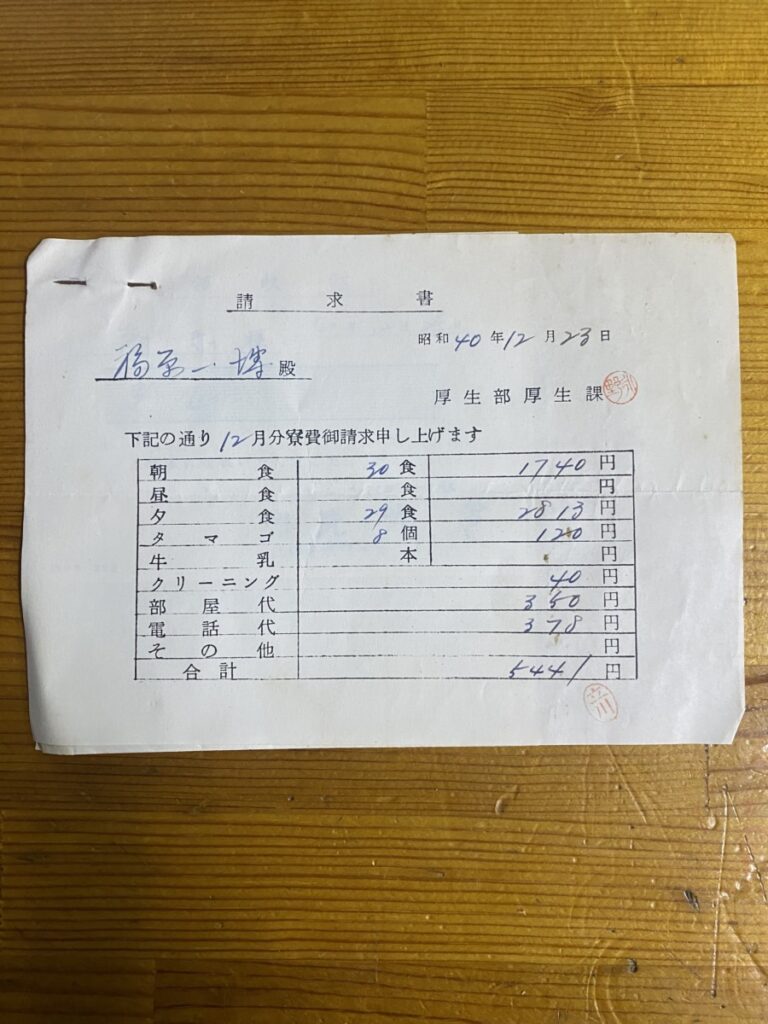 請求書
昭和40年12月23日
一博殿
厚生部厚生課
下記の通り12月分寮費御請求申し上げます
朝食 30食 1740円
昼食 食 円
夕食 29食 2813円
タマゴ 8個 120円
牛乳 本 円
クリーニング 40円
部屋代 350円
電話代 378円
その他 円
合計 5441円
立川